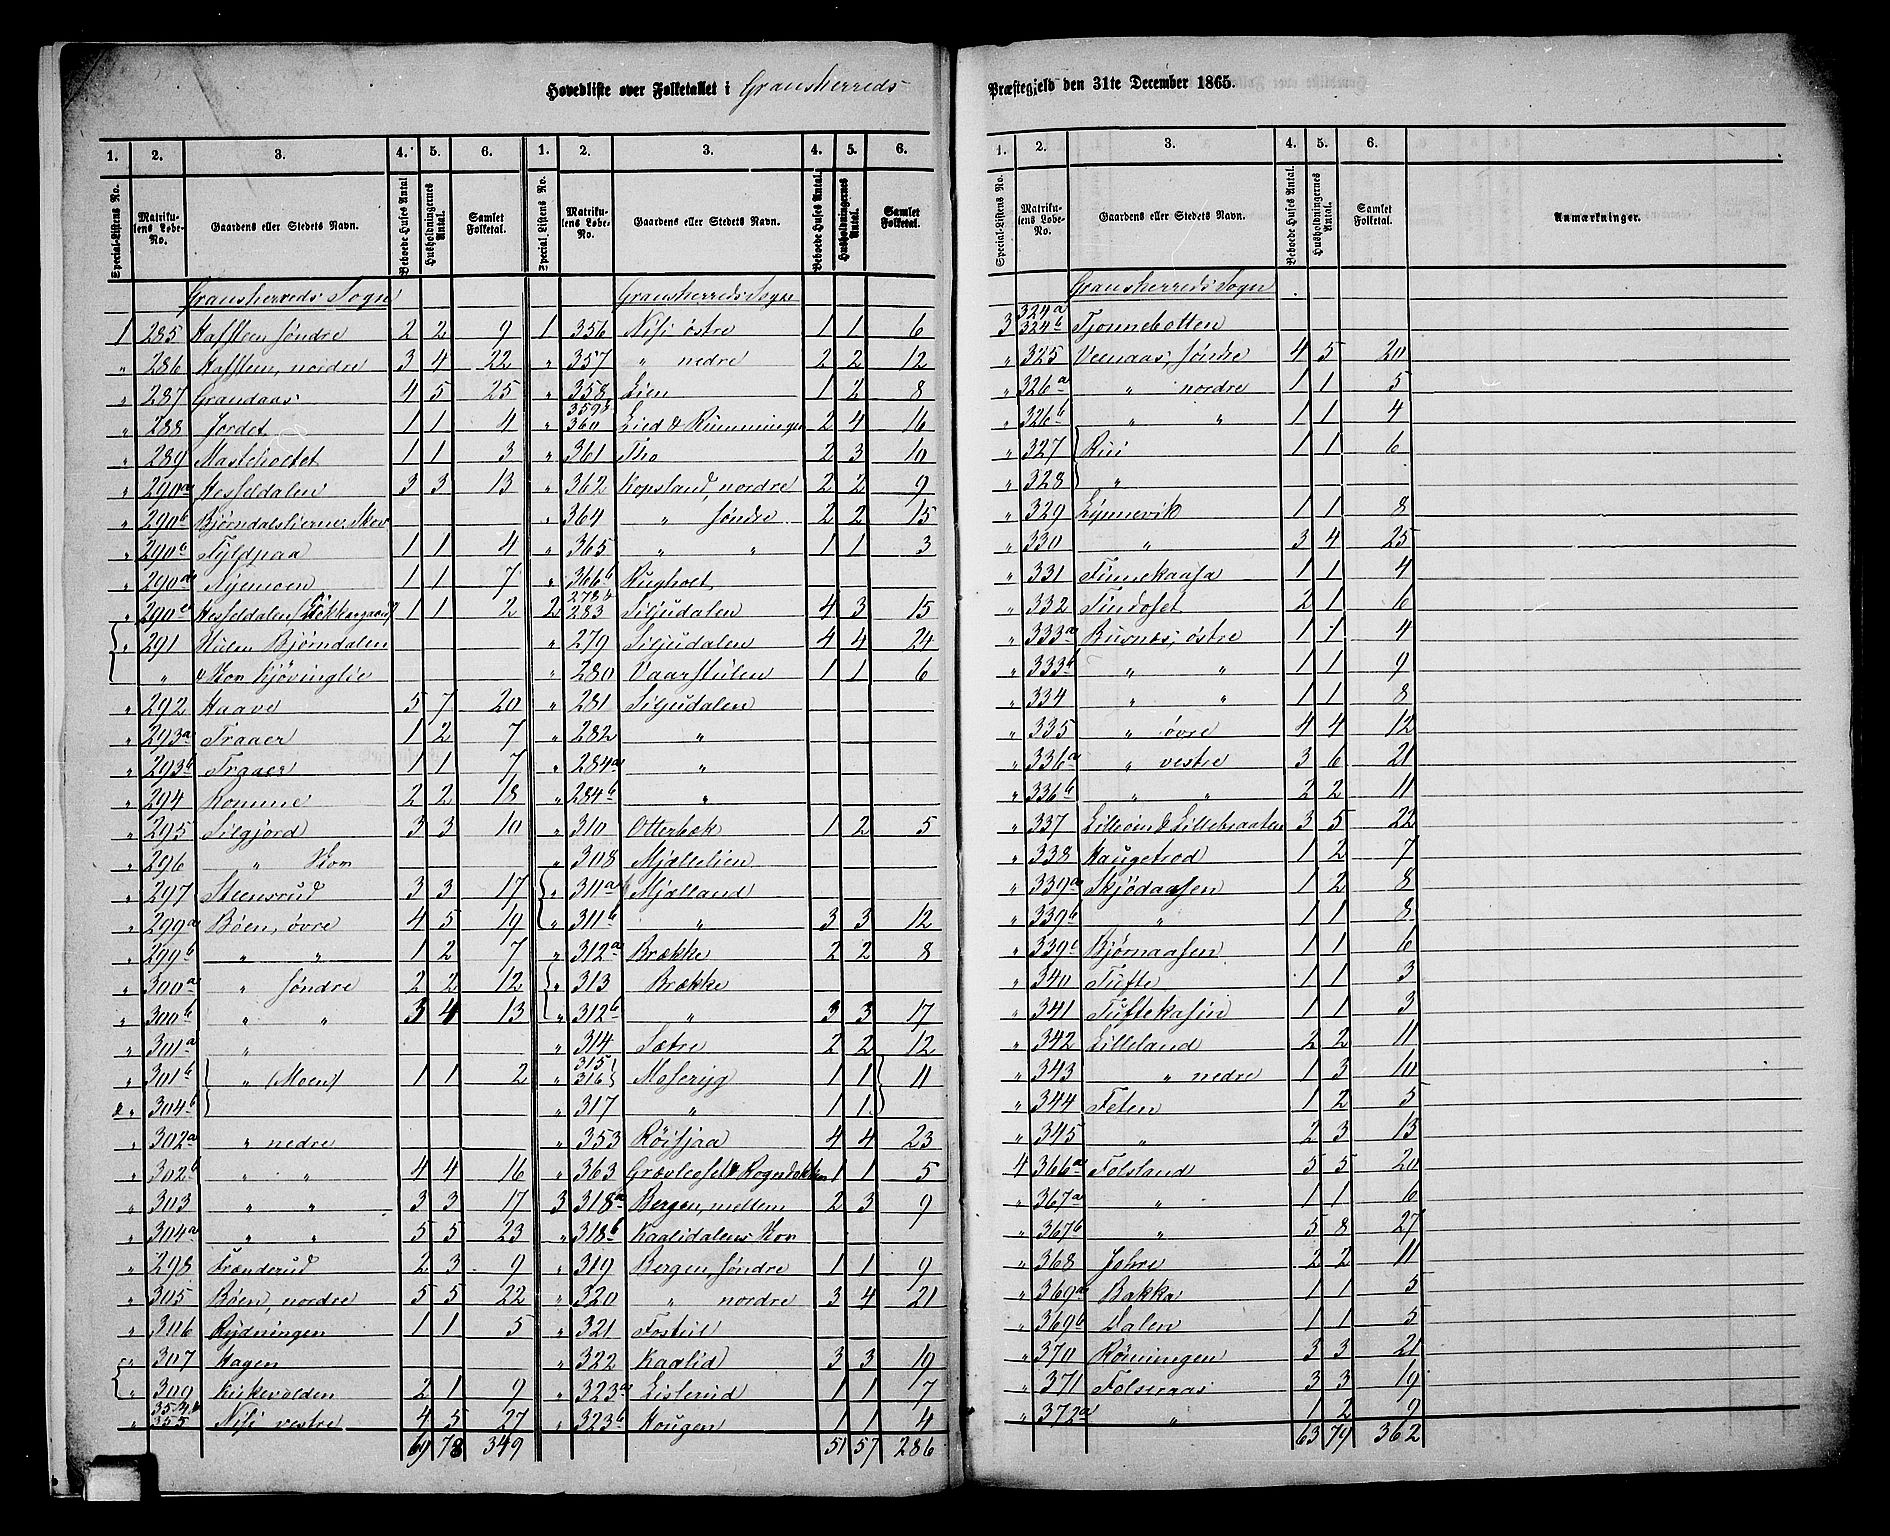 Hovedliste over Folketallet i Gransherreds Præstegjeld den 31te December 1865.
1. 2. 3. 4. 5. 6. 1. 2. 3. 4. 5. 6.
Special-Listens No. Matrikulens Løbe-No. Gaardens eller Stedets Navn. Beboede Huses Antal Husholdningernes Antal Samlet Folketal. Special Listens No. Matrikulens Løbe-No. Gaardens eller Stedets Navn. Beboede Huses Antal. Husholdningernes Antal. Samlet Folketal.
Gransherreds Sogn
1 285 Haffteen søndre 2 2 9
" 286 Haffteen, nordre 3 4 22
" 287 Grandaas 4 5 25
" 288 Jordet 1 1 4
" 289 Masteholtet 1 1 3
" 290a Hesteldalen 3 3 13
290b Bjørndalstjernes Skov
" 290b 1 1 4
" 290a Nyemoen 1 1 7
290 Hesteldalen 1 1 2
" 291 Bjørndalen
"
" 292 Haave 5 7 20
" 293a Traaer 1 2 7
" 293b Traaer 1 1 7
" 294 Romme 2 2 18
" 295 Silgjord 3 3 10
" 296 "
" 297 Steensrud 3 3 17
" 299a Bøen, øvre 4 5 19
" 299b " " 1 2 7
" 300a " søndre 2 2 12
" 300b " " 3 4 13
" 301a "
" 301b " (Moen) 1 1 2
" 304b
" 302a " nedre
" 302b " " 4 4 16
" 303 " " 3 3 17
" 304a " " 5 5 23
" 298 Frænderud 2 3 9
" 305 Bøen, nordre 5 5 22
" 306 Rydningen 1 1 5
" 307 Hagen
" 309 Kirkevolden 2 1 9
" 355 Nisi vestre 4 5 27
69 78 349
Gransherreds Sogn
1 356 Nisi østre 1 1 6
" 357 " nedre 2 2 12
" 358 Lien 1 2 8
359b
" 360 2 4 16
" 361 Tho 2 3 10
" 362 Kopsland, nordre 2 2 9
" 364 " søndre 2 2 15
" 365 " " 1 1 3
" 366b Rugholt
278b
2 283 Siljudalen 4 3 15
" 279 Siljudalen 4 4 24
" 280 Vaarstulen 1 1 6
" 281 Siljudalen
" 282 "
" 284a "
" 284b "
" 310 Otterbæk 1 2 5
" 308 Mjællelien
" 311a Mjælland
" 311b " 3 3 12
" 312a Brække 2 2 8
" 313 Brække
" 312b " 3 3 17
" 314 Sætre 2 2 12
315
" 316 Moseryg 1 1 11
" 317 " 1 1
" 353 Røisjaa 4 4 23
" 363 1 1 5
3 318a Bergen, mellem 2 3 9
" 318b
" 319 Bergen, søndre 1 1 9
" 320 " nordre 3 4 21
" 321 Fostul
" 322 Kaalid 3 3 19
" 323a Listerud 1 1 7
" 323b Hougen 1 1 4
51 57 286
1. 2. 3. 4. 5. 6.
Special-Listens No. Matrikulens Løbe-No. Gaardens eller Stedets Navn. Beboede Huses Antal. Husholdningernes Antal. Samlet Folketal. Anmærkninger.
Gransherreds Sogn
324a
3 324b Tjonnebotten
" 325 Veenaas, søndre 4 5 20
" 326a " nordre 1 1 5
" 326b " " 1 1 4
" 327 Rui 1 1 6
" 328 "
" 329 Lynnevik 1 1 8
" 330 " 3 4 25
" 331 Finnekaasa 1 1 4
" 332 Tindoset 2 1 6
" 333a Busnæs, østre 1 1 4
" 333b " " 1 1 9
" 334 " " 1 1 8
" 335 " øvre 4 4 12
" 336a " vestre 3 6 21
" 336b " " 2 2 11
" 337 3 5 22
" 338 Haugetrod 1 2 7
" 339a Skjødaasen 1 2 8
" 339b " 1 1 8
" 339c Bjørnaasen 1 1 6
" 340 Tufte 1 1 3
" 341 Tuftekasin 1 1 3
" 342 Lilleland 2 2 11
" 343 " nedre 1 3 10
" 344 Feten 1 2 5
" 345 " 2 3 13
4 366a Folsland 5 5 20
" 367a " 1 1 6
" 367b " 5 8 27
" 368 Johre 2 2 11
" 369a Bakka 1 1 5
" 369b Dalen 1 1 5
" 370 Rønningen 3 3 21
" 371 Folseraas 3 3 19
" 372a " 1 2 9
63 79 362